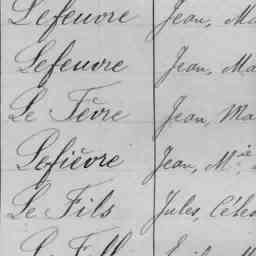 Lefeuvre Jean, Ma
Lefeuvre Jean, Ma
Le Fèvre Jean, Ma
Lefièvre Jean, M.ie
Le Fils Jules, Céles